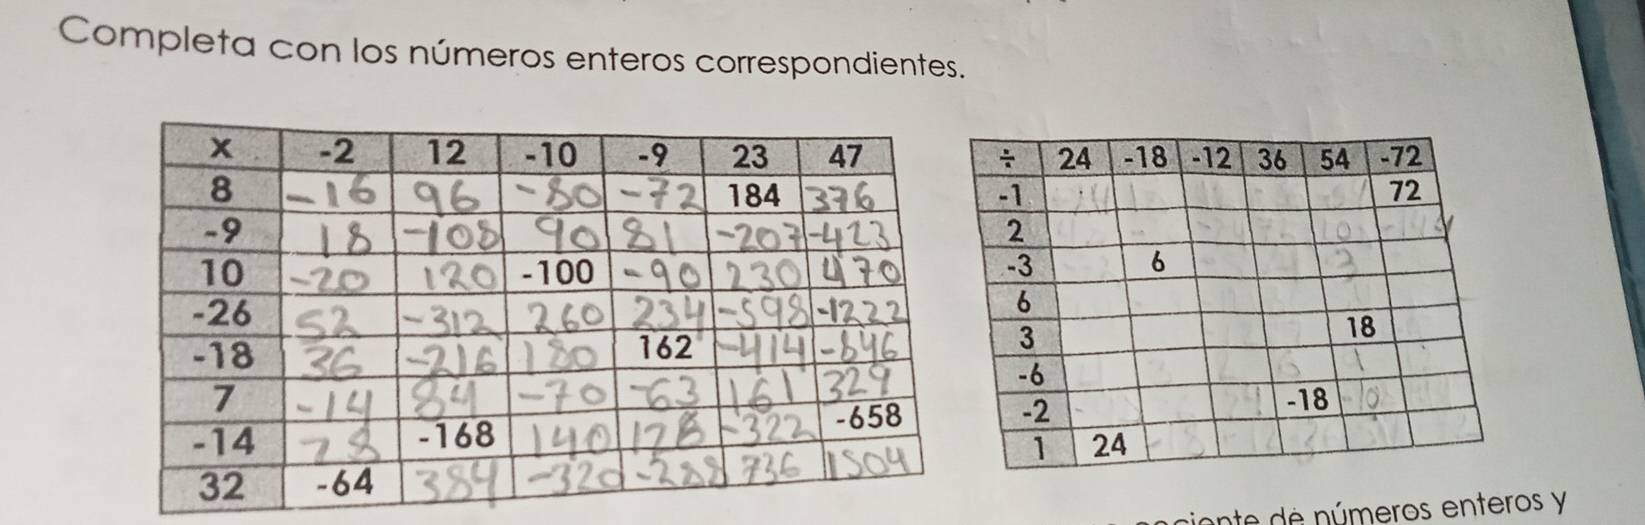 Completa con los números enteros correspondientes.
x -2 12 -10 -9 23 47
8 -16 96 -80 -72 184 376
-9 18 -108 90 81 -207 -423
10 -20 120 -100 -90 230 470
-26 52 -312 260 234 -598 -1222
-18 36 -216 180 162 -414 -846
7 -14 84 -70 -63 161 329
-14 28 -168 140 126 -322 -658
32 -64 384 -320 -288 736 1504
÷ 24 -18 -12 36 54 -72
-1 72
2
-3 6
6
3 18
-6
-2 -18
1 24
de números enteros y